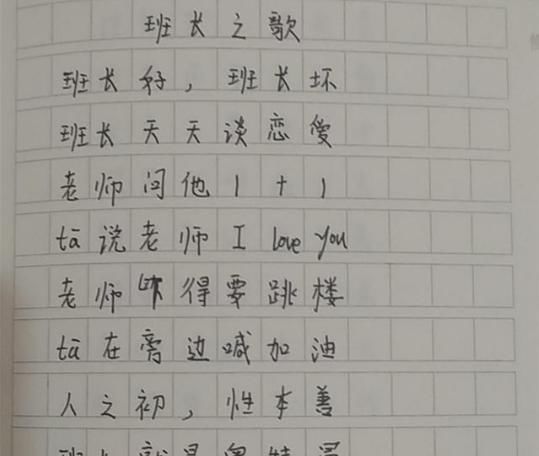 班长之歌
班长好，班长坏
班长天天谈恋爱
老师问他1+1
tā说老师I love you
老师吓得要跳楼
tā在旁边喊加油
人之初，性本善